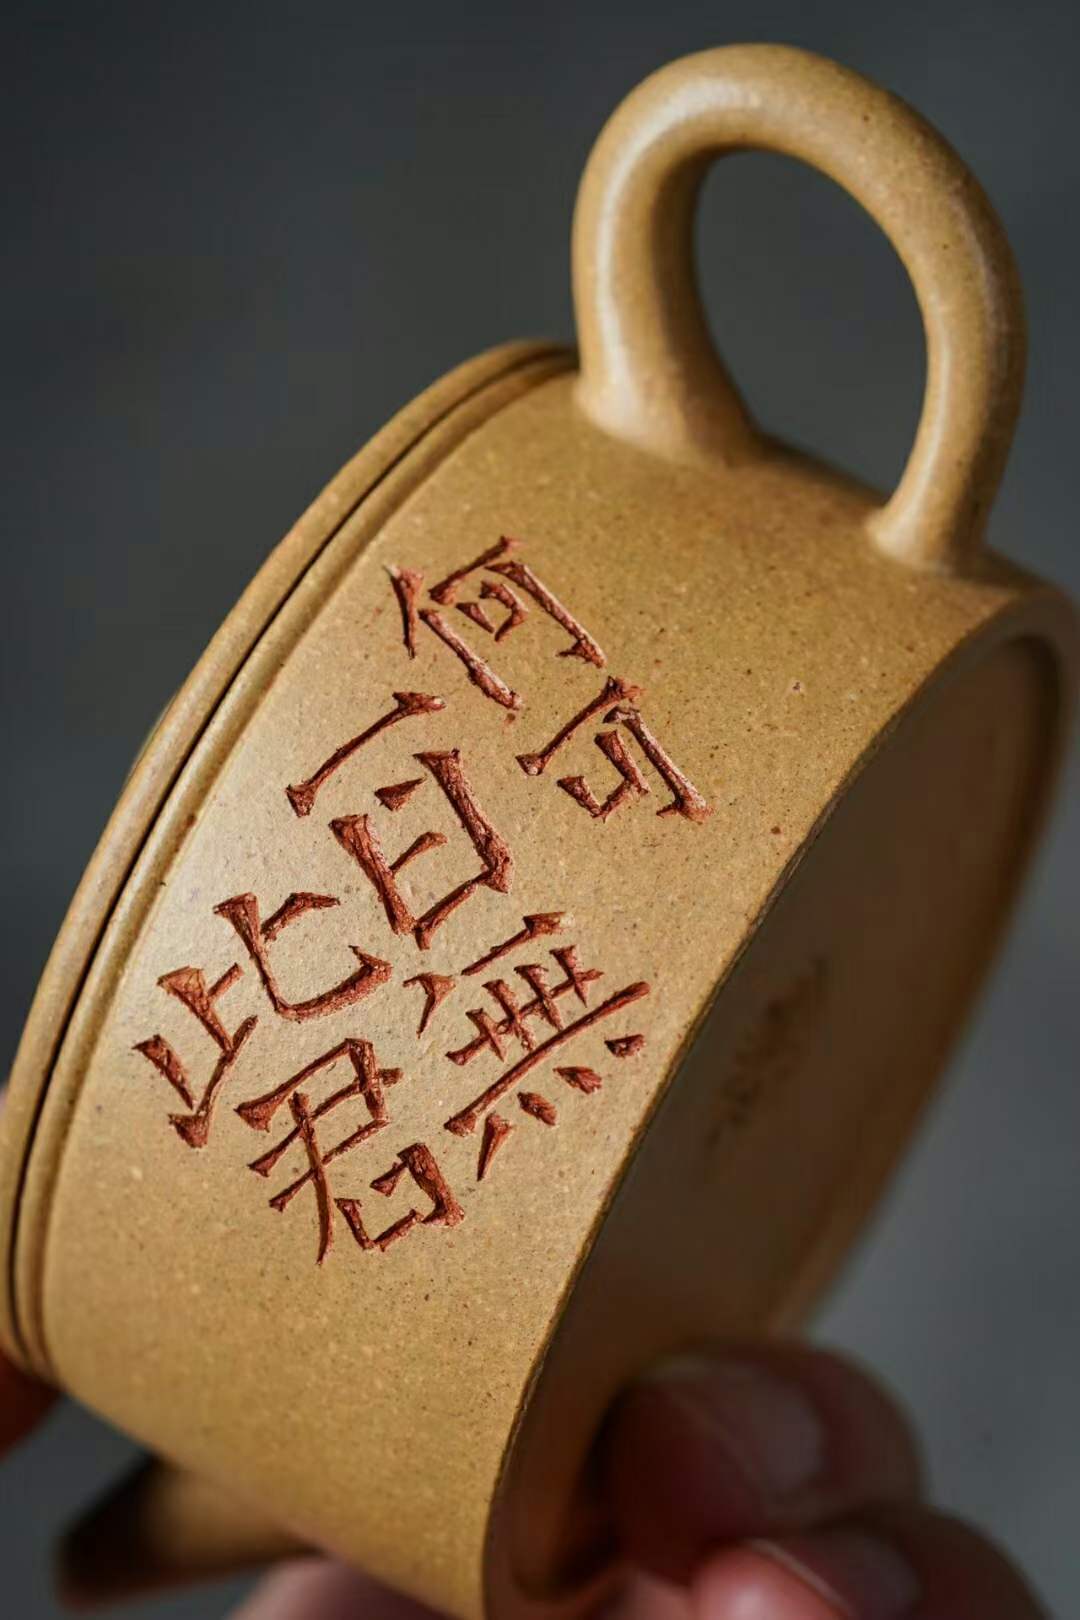 何可
一日無
此君